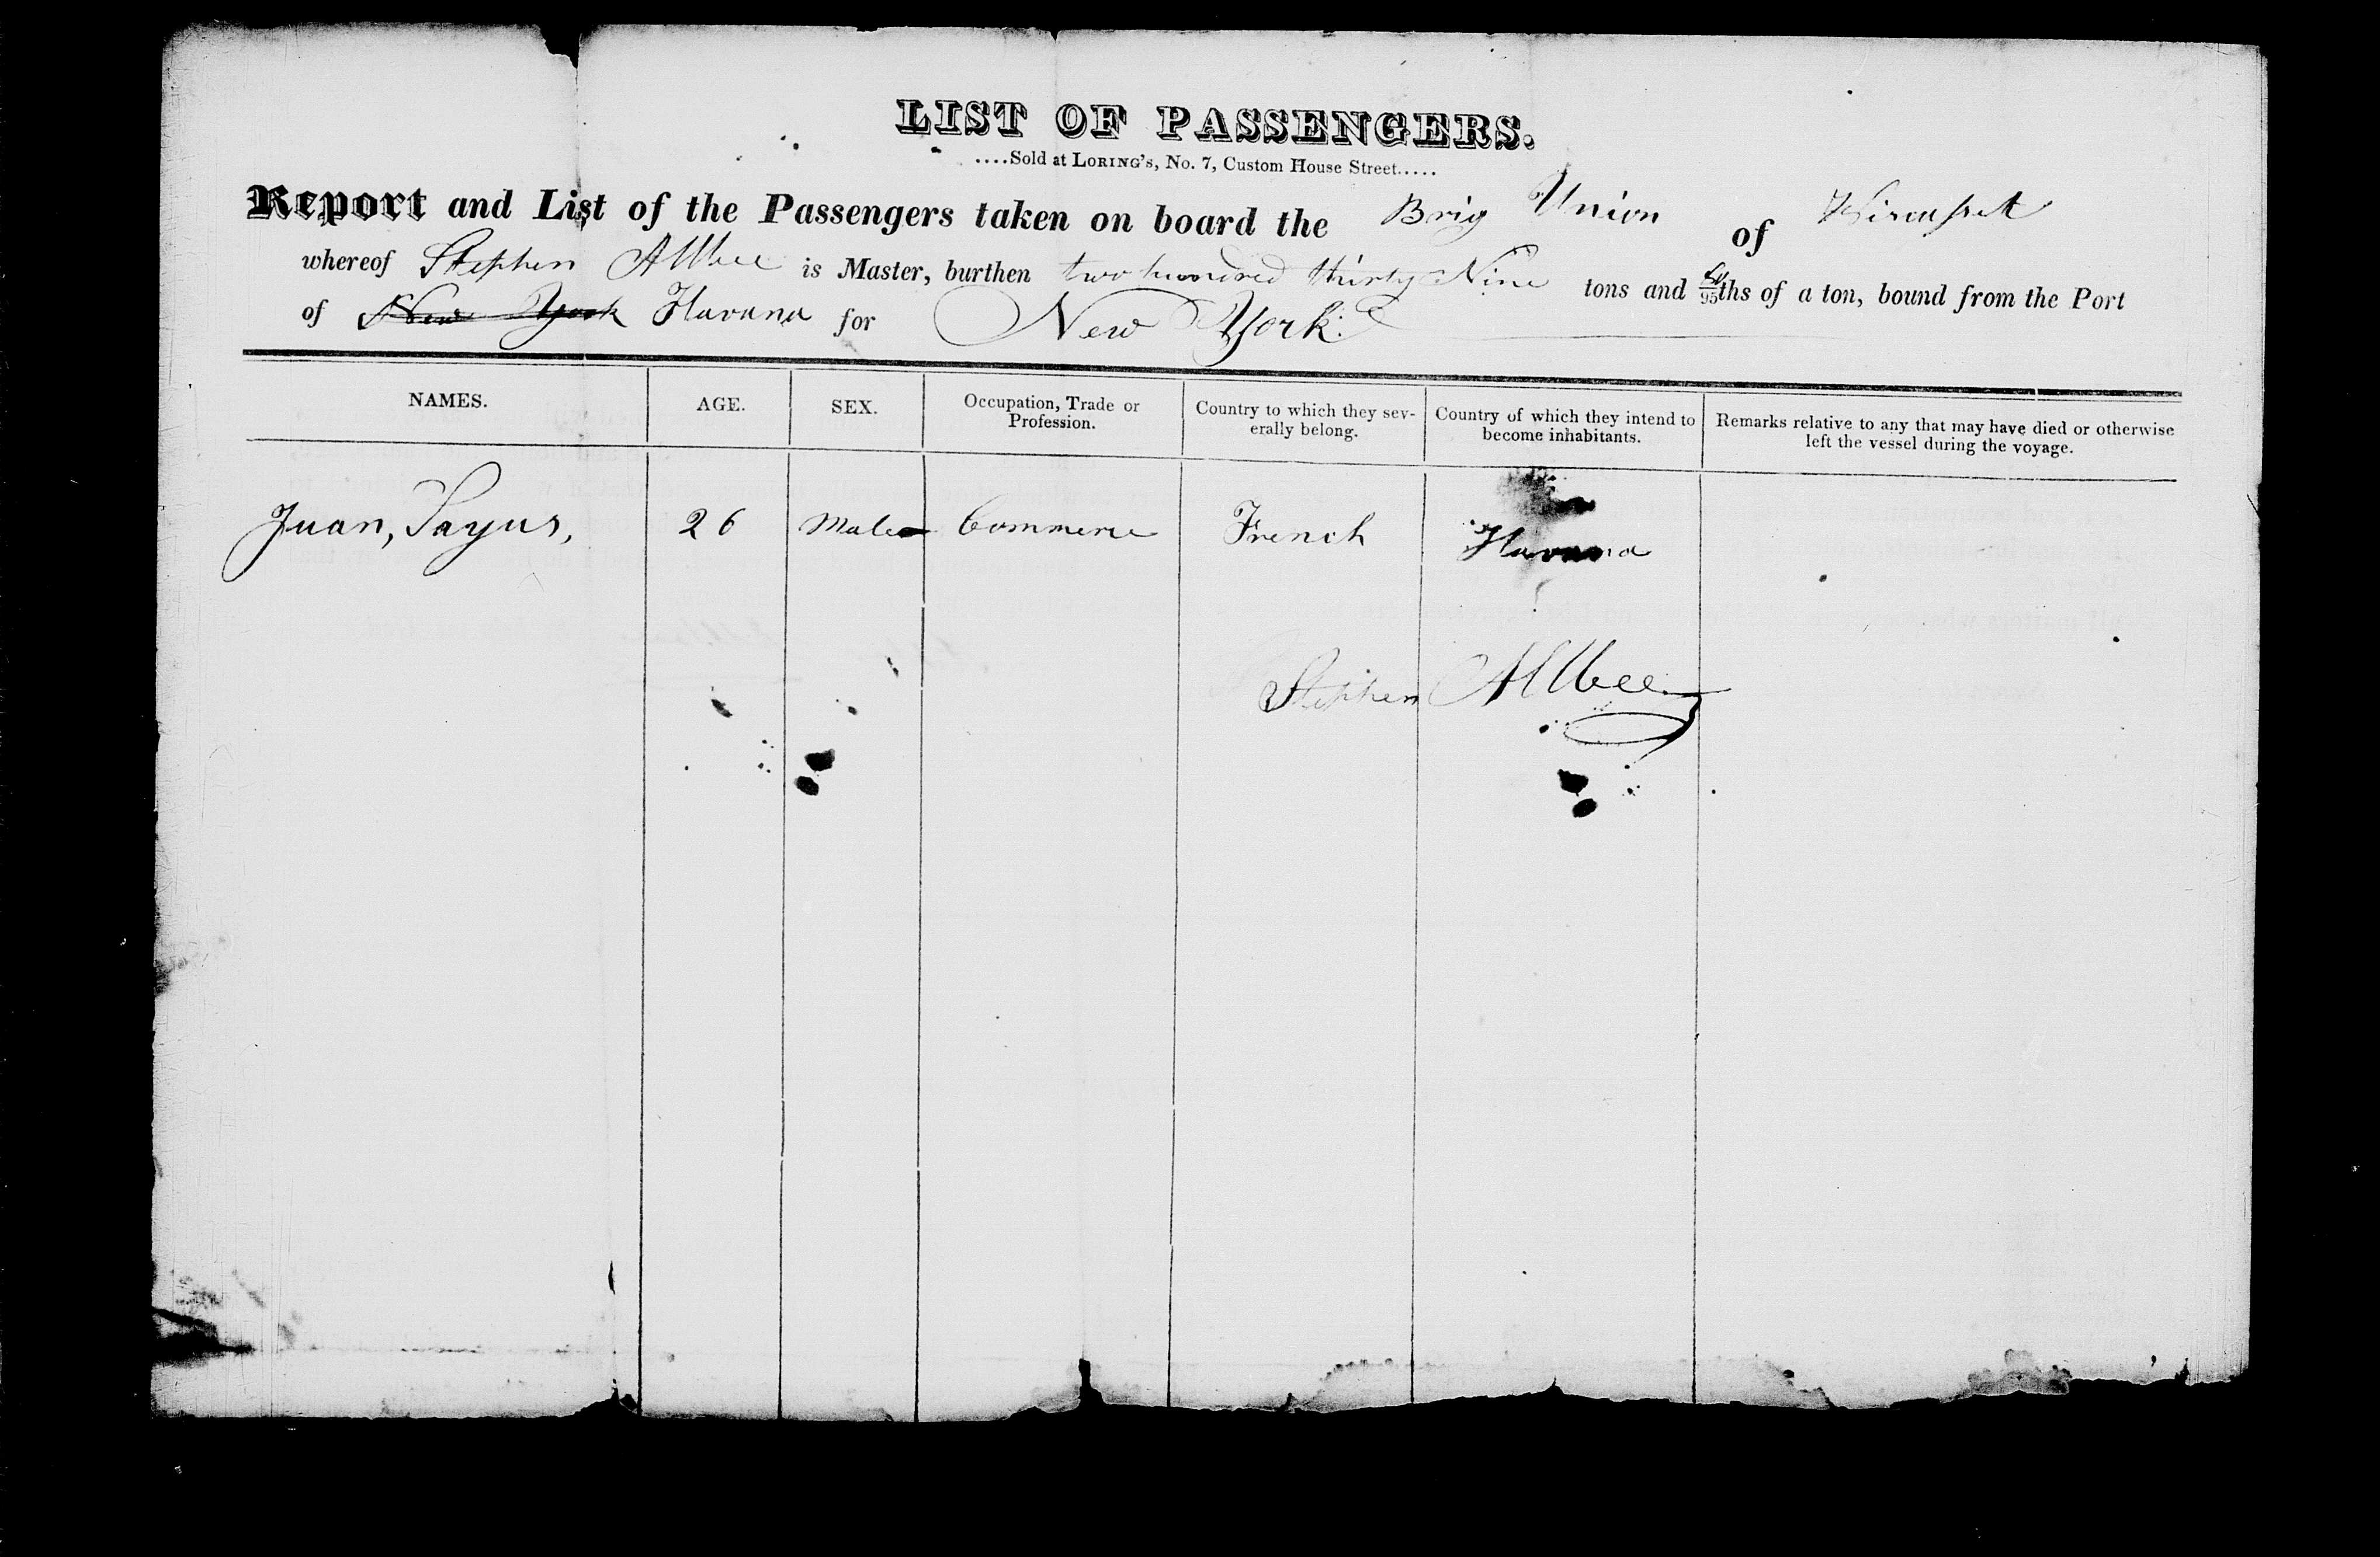 LIST OF PASSENGERS.
....Sold at LORING'S, No. 7, Custom House Street.....
Report and List of the Passengers taken on board the Brig Union of Wiscasset
whereof Stephen Allbee is Master, burthen two hundred thirty Nine tons and 95ths of a ton, bound from the Port
of New York Havana for New York
NAMES. AGE. SEX. Occupation, Trade or Profession. Country to which they severally belong. Country of which they intend to become inhabitants. Remarks relative to any that may have died or otherwise left the vessel during the voyage.
Juan, Sayus, 26 Male Commerce French Havana
Stephen Allbee